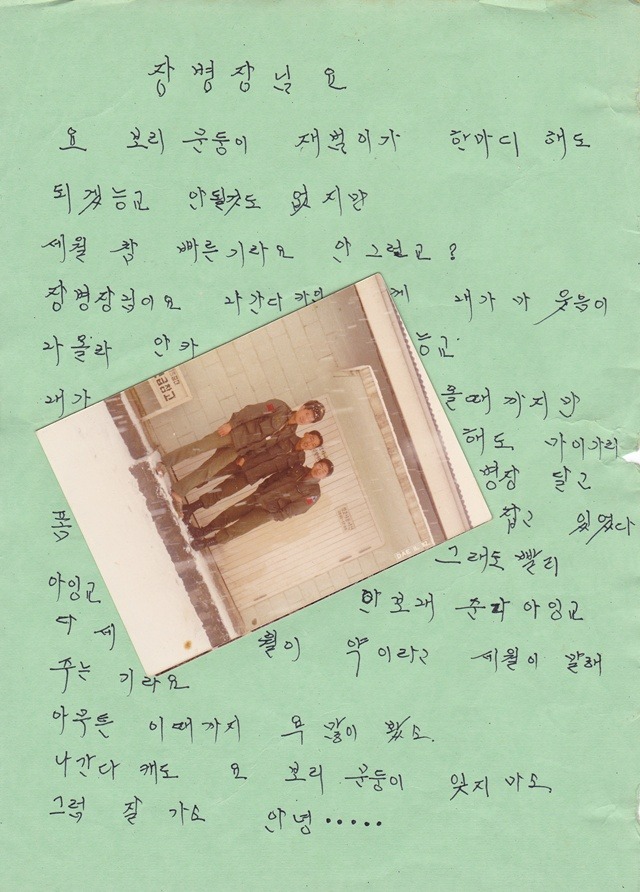 장병장님요
요 보리 문둥이 재벌이가 한마디 해도
되겠능교 안될것도 없지만
세월 참 빠른기라요 안그렇교?
장병장님이요 나간다 카인 께 내가 마 웃음이
나올라 안카 능교
내가 올때까지만
해도 가이가리
병장 달고
폼 잡고 있었다
아잉교 그래도 빨리
안보내 준다 아잉교
다 세월이 약이라고 세월이 말해
주는 기라요
아무튼 이때까지 욕 많이 봤소.
나간다 캐도 요 보리 문둥이 잊지마소.
그럼 잘 가소 안녕.....